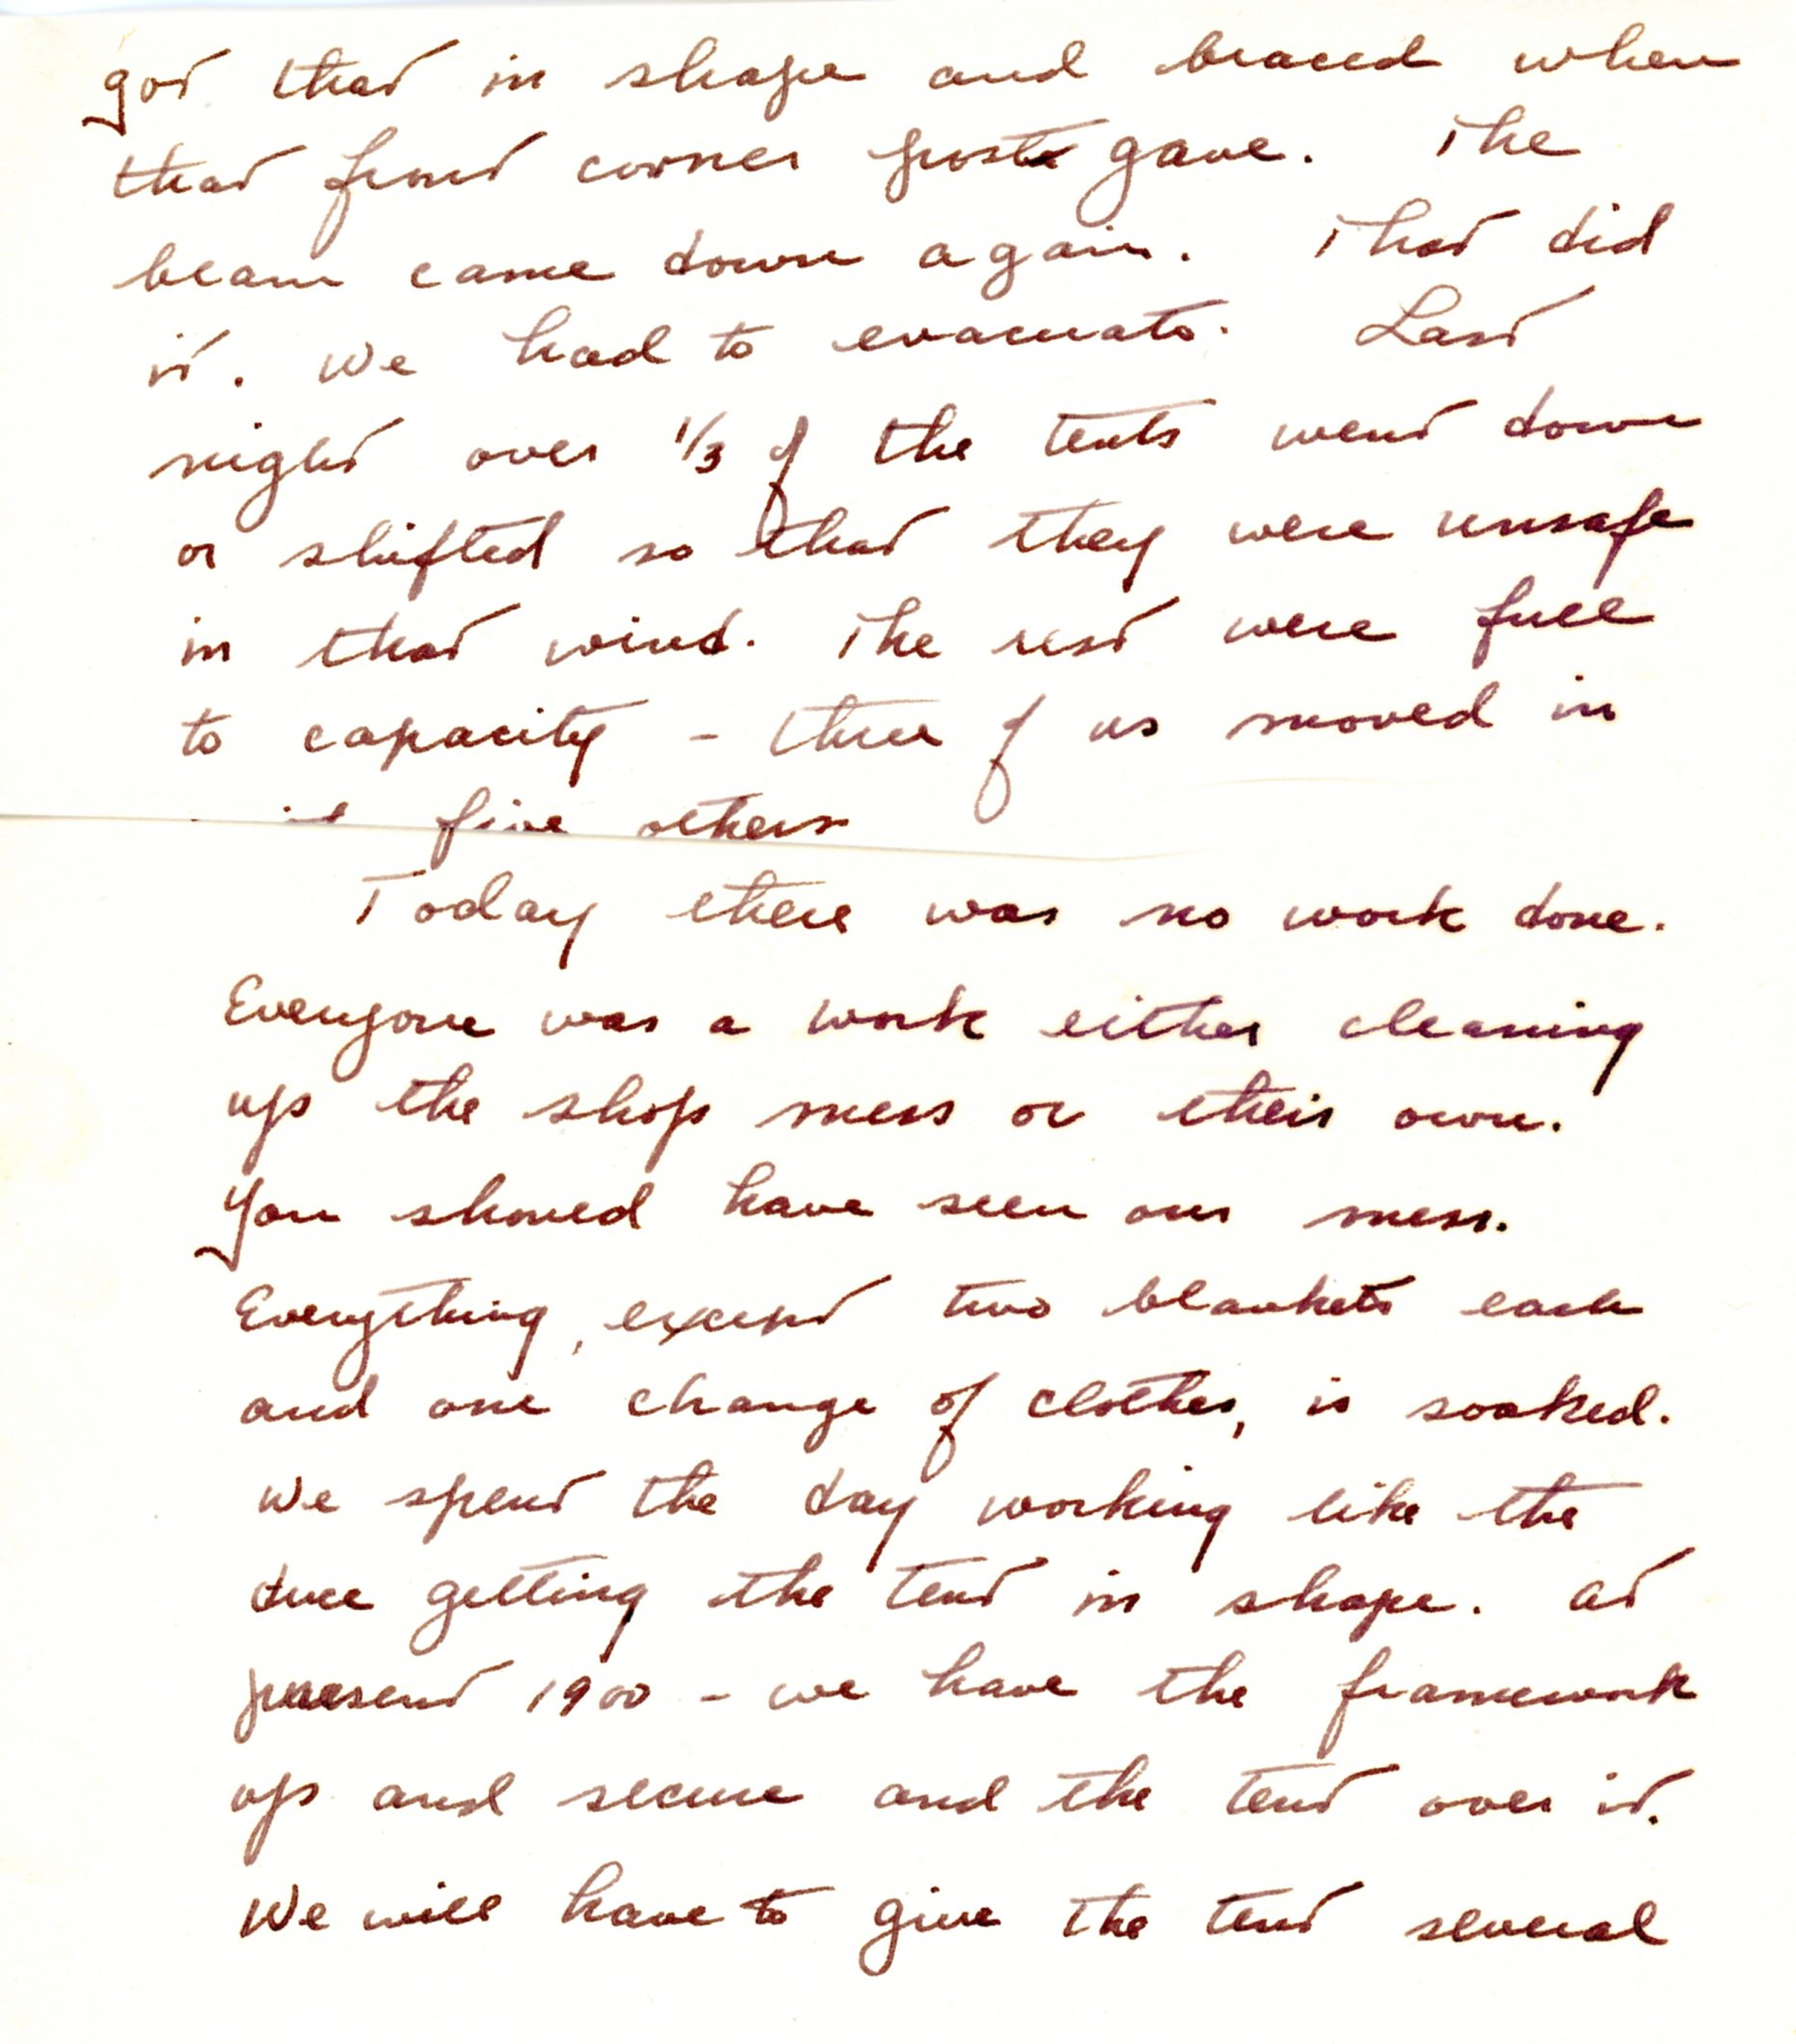 got that in shape and braced when
that front corner post gave. The
beam came down again. That did
it. We had to evacuate. Last
night over 1/3 of the tents went down
or shifted so that they were unsafe
in that wind. The rest were full
to capacity - three of us moved in
five others
Today there was no work done.
Everyone was a work either cleaning
up the shop mess or their own.
You should have seen our mess.
Everything, except two blankets each
and one change of clothes, is soaked.
We spent the day working like the
duce getting the tent in shape. At
present 1900 - we have the framework
up and secure and the tent over it.
We will have to give the tent several